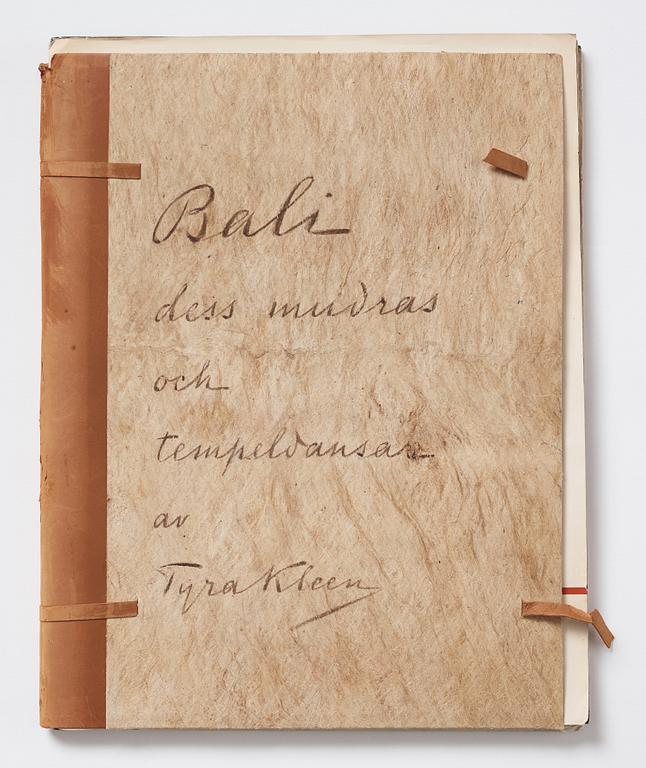 Bali
dess mudras
och
tempeldansar
av
Tyra Kleen